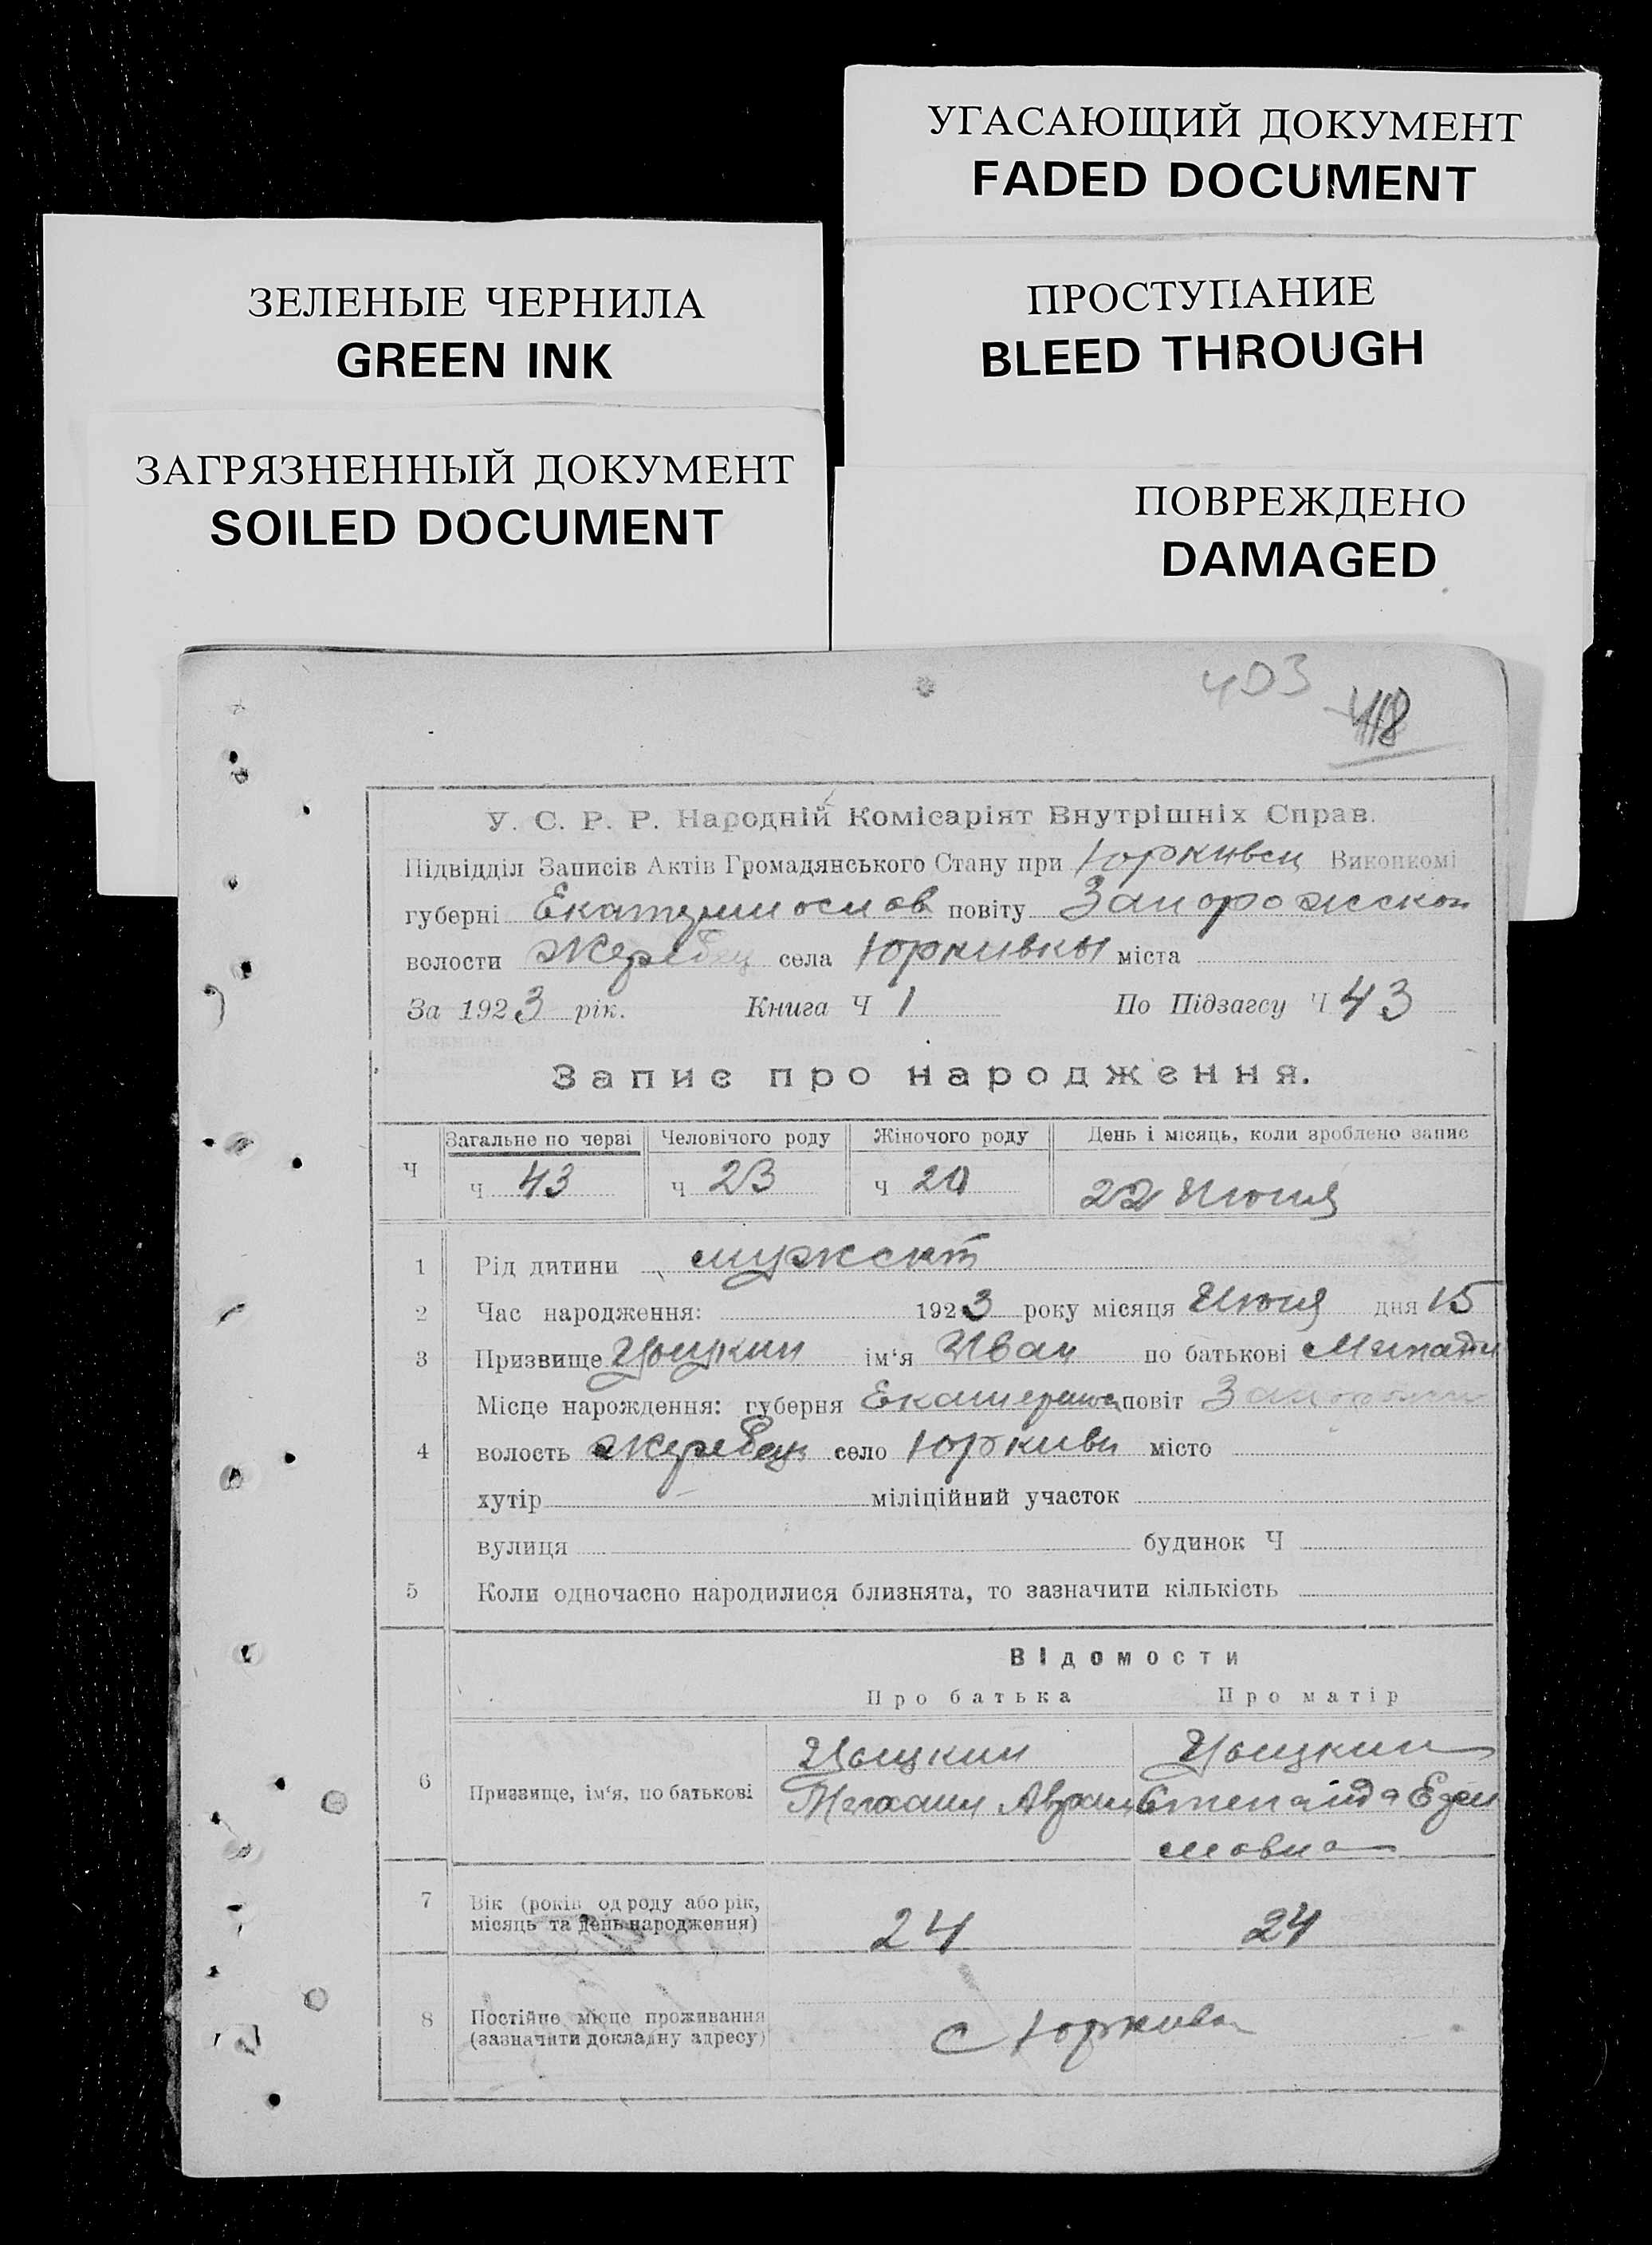 УГАСАЮЩИЙ ДОКУМЕНТ
FADED DOCUMENT
ЗЕЛЕНЫЕ ЧЕРНИЛА
GREEN INK
ПРОСТУПАНИЕ
BLEED THROUGH
ЗАГРЯЗНЕННЫЙ ДОКУМЕНТ
SOILED DOCUMENT
ПОВРЕЖДЕНО
DAMAGED
403
418
У. С. Р. Р. Народній Комісаріят Внутрішніх Справ.
Підвідділ Записів Актів Громадянського Стану при Юркивск Виконкомі
губерні Екатеринослав повіту Запорожской
волости Жеребец села Юркивки міста
За 1923 рік. Книга Ч 1 По Підзагсу Ч 43
Запис про народження.
Загальне по черві Человічого роду Жіночого роду День і місяць, коли зроблено запис
Ч ч 43 ч 23 ч 20 22 Июня
1 Рід дитини мужск
2 Час народження: 1923 року місяця Июня дня 15
3 Призвище ім‘я Иван по батькові
Місце нарождення: губерня Екатеринос повіт
4 волость Жеребец село Юркивк місто
хутір міліційний участок
вулиця будинок Ч
5 Коли одночасно народилися близнята, то зазначити кількість
Відомости
Про батька Про матір
6 Призвище, ім‘я, по батькові
7 Вік (років од роду або рік,
місяць та день народження) 24 24
8 Постійне місце проживання
(зазначити докладну адресу) С Юркивка